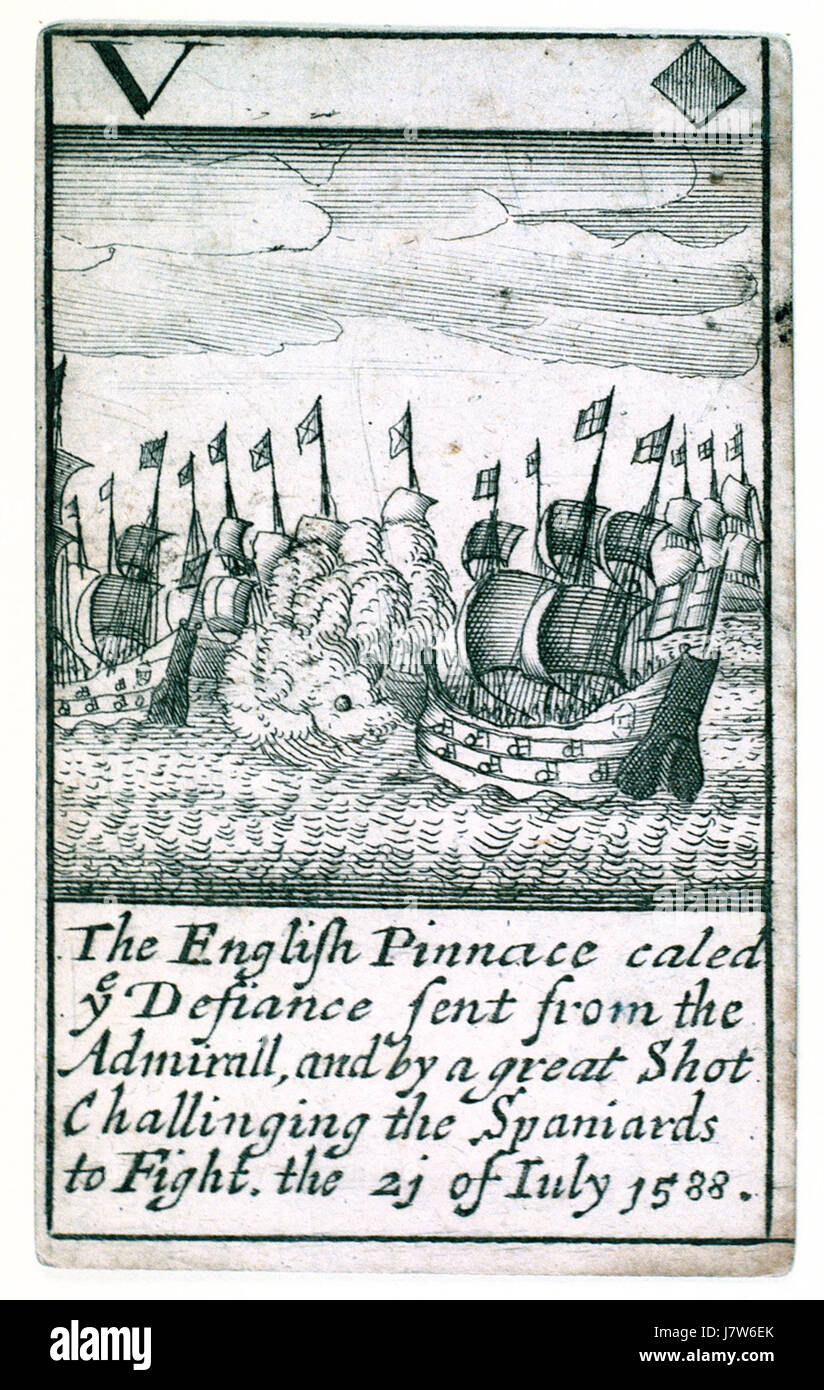 V
The Engliſh Pinnace caled
yͤ Defiance ſent from the
Admirall, and by a great Shot
Challinging the Spaniards
to Fight. the 2j of Iuly 1588.
alamy stock photo
J7W6EK
www.alamy.com